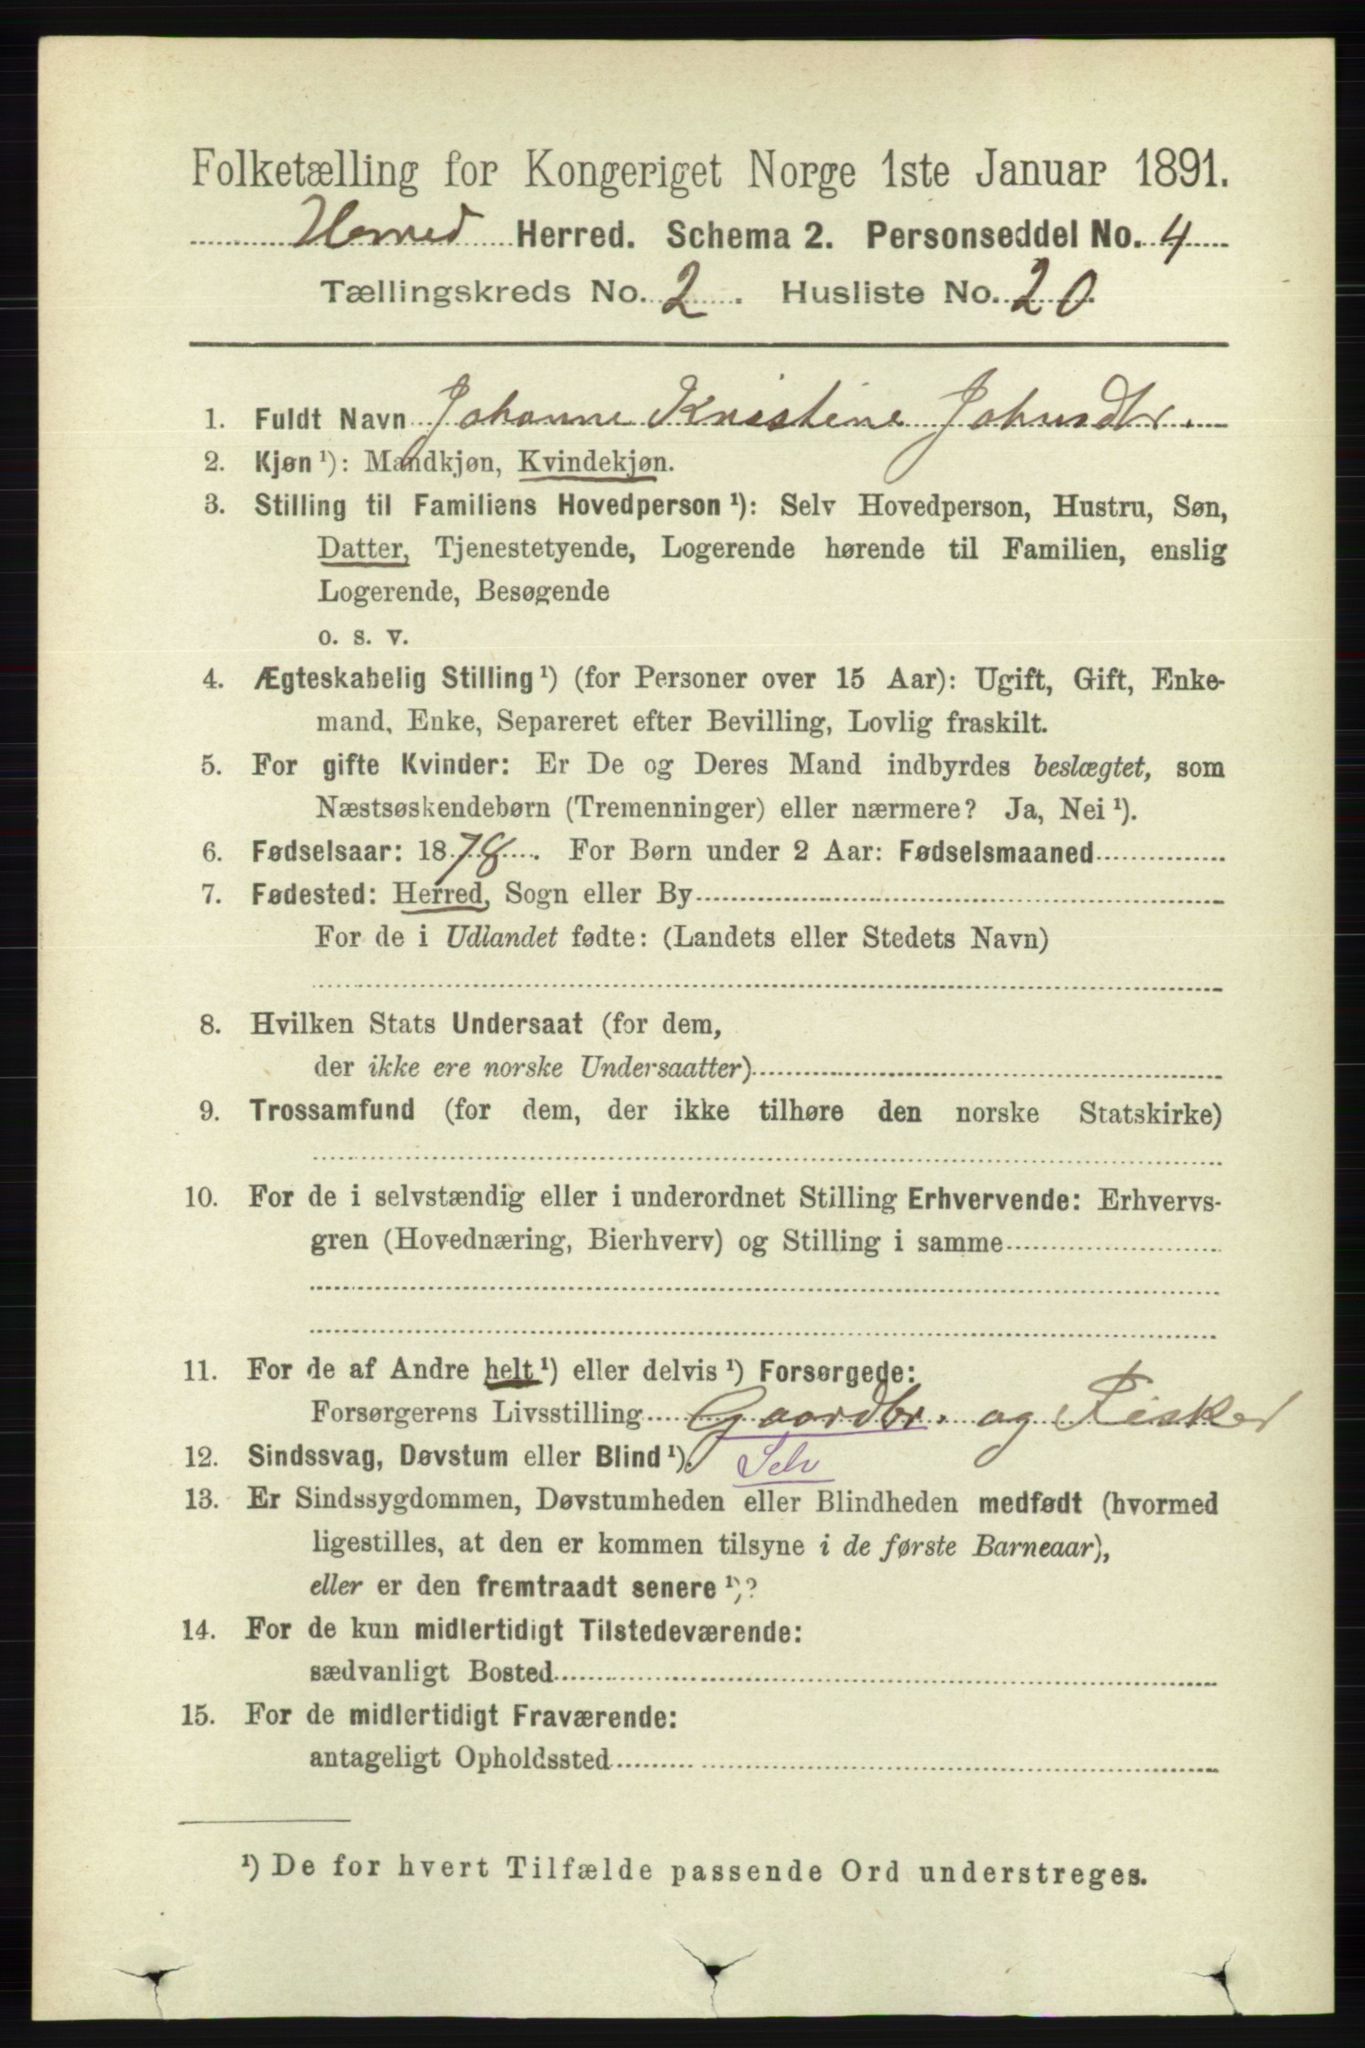 Folketælling for Kongeriget Norge 1ste Januar 1891.
Herred. Schema 2. Personseddel No. 4
Tællingskreds No. 2. Husliste No. 20.
1. Fuldt Navn Johanne Kristine Johnsdtr.
2. Kjøn ¹): Mandkjøn, Kvindekjøn.
3. Stilling til Familiens Hovedperson ¹): Selv Hovedperson, Hustru, Søn,
Datter, Tjenestetyende, Logerende hørende til Familien, enslig
Logerende, Besøgende
o. s. v.
4. Ægteskabelig Stilling ¹) (for Personer over 15 Aar): Ugift, Gift, Enke-
mand, Enke, Separeret efter Bevilling, Lovlig fraskilt.
5. For gifte Kvinder: Er De og Deres Mand indbyrdes beslægtet, som
Næstsøskendebørn (Tremenninger) eller nærmere? Ja, Nei ¹).
6. Fødselsaar: 1878. For Børn under 2 Aar: Fødselsmaaned
7. Fødested: Herred, Sogn eller By
For de i Udlandet fødte: (Landets eller Stedets Navn)
8. Hvilken Stats Undersaat (for dem,
der ikke ere norske Undersaatter)
9. Trossamfund (for dem, der ikke tilhøre den norske Statskirke)
10. For de i selvstændig eller i underordnet Stilling Erhvervende: Erhvervs-
gren (Hovednæring, Bierhverv) og Stilling i samme
11. For de af Andre helt ¹) eller delvis ¹) Forsørgede:
Forsørgerens Livsstilling Gaardbr. og Fisker
12. Sindssvag, Døvstum eller Blind ¹). Selv
13. Er Sindssygdommen, Døvstumheden eller Blindheden medfødt (hvormed
ligestilles, at den er kommen tilsyne i de første Barneaar),
eller er den fremtraadt senere ¹)?
14. For de kun midlertidigt Tilstedeværende:
sædvanligt Bosted
15. For de midlertidigt Fraværende:
antageligt Opholdssted
¹) De for hvert Tilfælde passende Ord understreges.